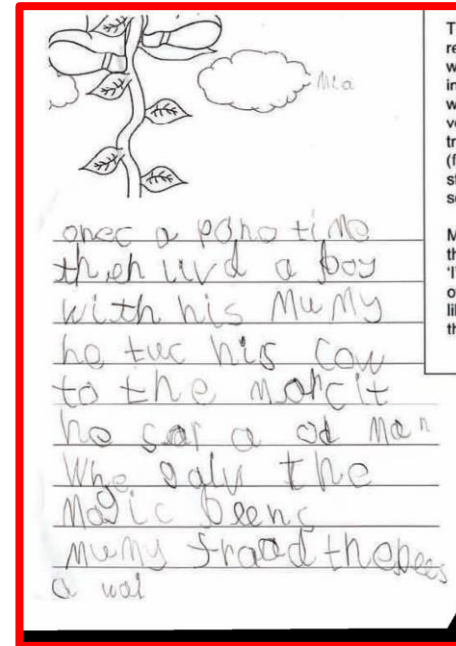 Mia
onec a pono time
then livd a boy
with his Mumy
he tuc his Cow
to the marcit
he sar a od Man
Whe the
Magic beenc
Mumy the bees
a wai
T
re
w
in
w
ve
tr
(f
st
se
M
th
'I'
of
lik
th